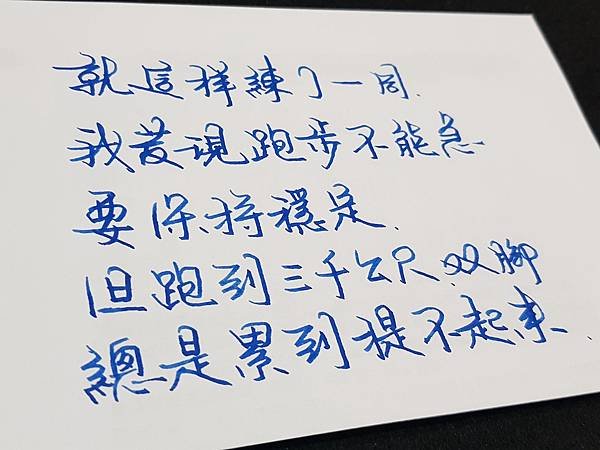 就這样練了一周.
我發現跑步不能急
要保持穩定.
但跑到三千公尺.双腳
總是累到提不起來.